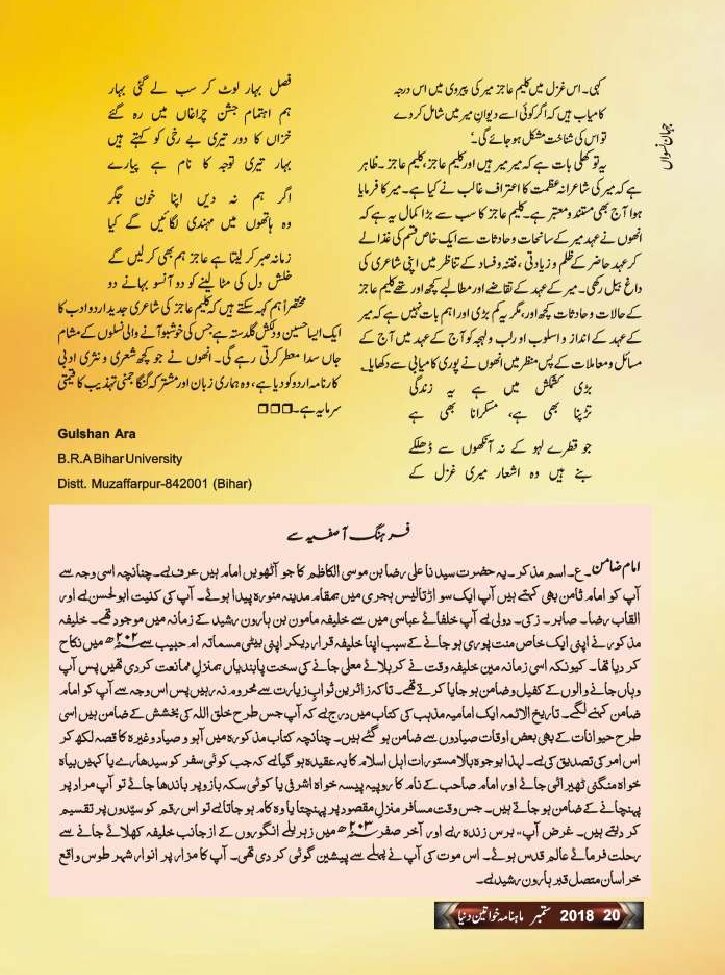 جہان نسواں
کہی۔ اس غزل میں کلیم عاجز میر کی پیروی میں اس درجہ
کامیاب ہیں کہ اگر کوئی اسے دیوانِ میر میں شامل کر دے
تو اس کی شناخت مشکل ہو جائے گی۔'
یہ تو کھلی بات ہے کہ میر میر ہیں اور کلیم عاجز، کلیم عاجز۔ ظاہر
ہے کہ میر کی شاعرانہ عظمت کا اعتراف غالب نے کیا ہے۔ میر کا فرمایا
ہوا آج بھی مستند و معتبر ہے۔ کلیم عاجز کا سب سے بڑا کمال یہ ہے کہ
انھوں نے عہد میر کے سانحات و حادثات سے ایک خاص قسم کی غذا لے
کر عہد حاضر کے ظلم و زیادتی، فتنہ و فساد کے تناظر میں اپنی شاعری کی
داغ بیل رکھی۔ میر کے عہد کے تقاضے اور مطالبے کچھ اور تھے کلیم عاجز
کے حالات و حادثات کچھ اور، مگر یہ کم بڑی اور اہم بات نہیں ہے کہ میر
کے عہد کے انداز و اسلوب اور لب و لہجہ کو آج کے عہد میں آج کے
مسائل و معاملات کے پس منظر میں انھوں نے پوری کامیابی سے دکھایا۔
بڑی کشمکش میں ہے یہ زندگی
تڑپنا بھی ہے، مسکرانا بھی ہے
جو قطرے لہو کے نہ آنکھوں سے ڈھلکے
بنے ہیں وہ اشعار میری غزل کے
فصل بہار لوٹ کر سب لے گئی بہار
ہم اہتمام جشن چراغاں میں رہ گئے
خزاں کا دور تیری بے رخی کو کہتے ہیں
بہار تیری توجہ کا نام ہے پیارے
اگر ہم نہ دیں اپنا خون جگر
وہ ہاتھوں میں مہندی لگائیں گے کیا
زمانہ صبر کر لیتا ہے عاجز ہم بھی کر لیں گے
خلش دل کی مٹا لینے کو دو آنسو بہانے دو
مختصراً ہم کہہ سکتے ہیں کہ کلیم عاجز کی شاعری جدید اردو ادب کا
ایک ایسا حسین و دلکش گلدستہ ہے جس کی خوشبو آنے والی نسلوں کے مشام
جاں سدا معطر کرتی رہے گی۔ انھوں نے جو کچھ شعری و نثری ادبی
کارنامہ اردو کو دیا ہے، وہ ہماری زبان اور مشترکہ گنگا جمنی تہذیب کا قیمتی
سرمایہ ہے۔ □□□
Gulshan Ara
B.R.A Bihar University
Distt. Muzaffarpur-842001 (Bihar)
فرہنگ آصفیہ سے
امام ضامن۔ ع۔ اسم مذکر۔ یہ حضرت سیدنا علی رضا بن موسی الکاظم کا جو آٹھویں امام ہیں عرف ہے۔ چنانچہ اسی وجہ سے
آپ کو امام ثامن بھی کہتے ہیں آپ ایک سو اڑتالیس ہجری میں بمقام مدینہ منورہ پیدا ہوئے۔ آپ کی کنیت ابوالحسن ہے اور
القاب رضا۔ صابر۔ زکی۔ دولی ہے آپ خلفائے عباسی میں سے خلیفہ مامون بن ہارون رشید کے زمانہ میں موجود تھے۔ خلیفہ
مذکور نے اپنی ایک خاص منت پوری ہو جانے کے سبب اپنا خلیفہ قرار دیکر اپنی بیٹی مسماتہ ام حبیب سے ۲۰۲ھ میں نکاح
کر دیا تھا۔ کیونکہ اسی زمانہ میں خلیفہ وقت نے کربلائے معلی جانے کی سخت پابندیاں بمنزل ممانعت کر دی تھیں پس آپ
وہاں جانے والوں کے کفیل و ضامن ہو جایا کرتے تھے۔ تاکہ زائرین ثواب زیارت سے محروم نہ رہیں پس اس وجہ سے آپ کو امام
ضامن کہنے لگے۔ تاریخ الائمہ ایک امامیہ مذہب کی کتاب میں درج ہے کہ آپ جس طرح خلق اللہ کی بخشش کے ضامن ہیں اسی
طرح حیوانات کے بھی بعض اوقات صیادوں سے ضامن ہو گئے ہیں۔ چنانچہ کتاب مذکورہ میں آہو و صیاد وغیرہ کا قصہ لکھ کر
اس امر کی تصدیق کی ہے۔ لہذا بوجوہ بالا مستورات اہل اسلام کا یہ عقیدہ ہو گیا ہے کہ جب کوئی سفر کو سیدھارے یا کہیں بیاہ
خواہ منگنی ٹھیرائی جائے اور امام صاحب کے نام کا روپیہ پیسہ خواہ اشرفی یا کوئی سکہ بازو پر باندھا جائے تو آپ مراد پر
پہنچانے کے ضامن ہو جاتے ہیں۔ جس وقت مسافر منزل مقصود پر پہنچتا یا وہ کام ہو جاتا ہے تو اس رقم کو سیّدوں پر تقسیم
کر دیتے ہیں۔ غرض آپ برس زندہ رہے اور آخر صفر ۲۰۳ھ میں زہریلے انگوروں کے از جانب خلیفہ کھلائے جانے سے
رحلت فرمائے عالم قدس ہوئے۔ اس موت کی آپ نے پہلے سے پیشین گوئی کر دی تھی۔ آپ کا مزار پر انوار شہر طوس واقع
خراسان متصل قبر ہارون رشید ہے۔
ماہنامہ خواتین دنیا ستمبر 2018 20